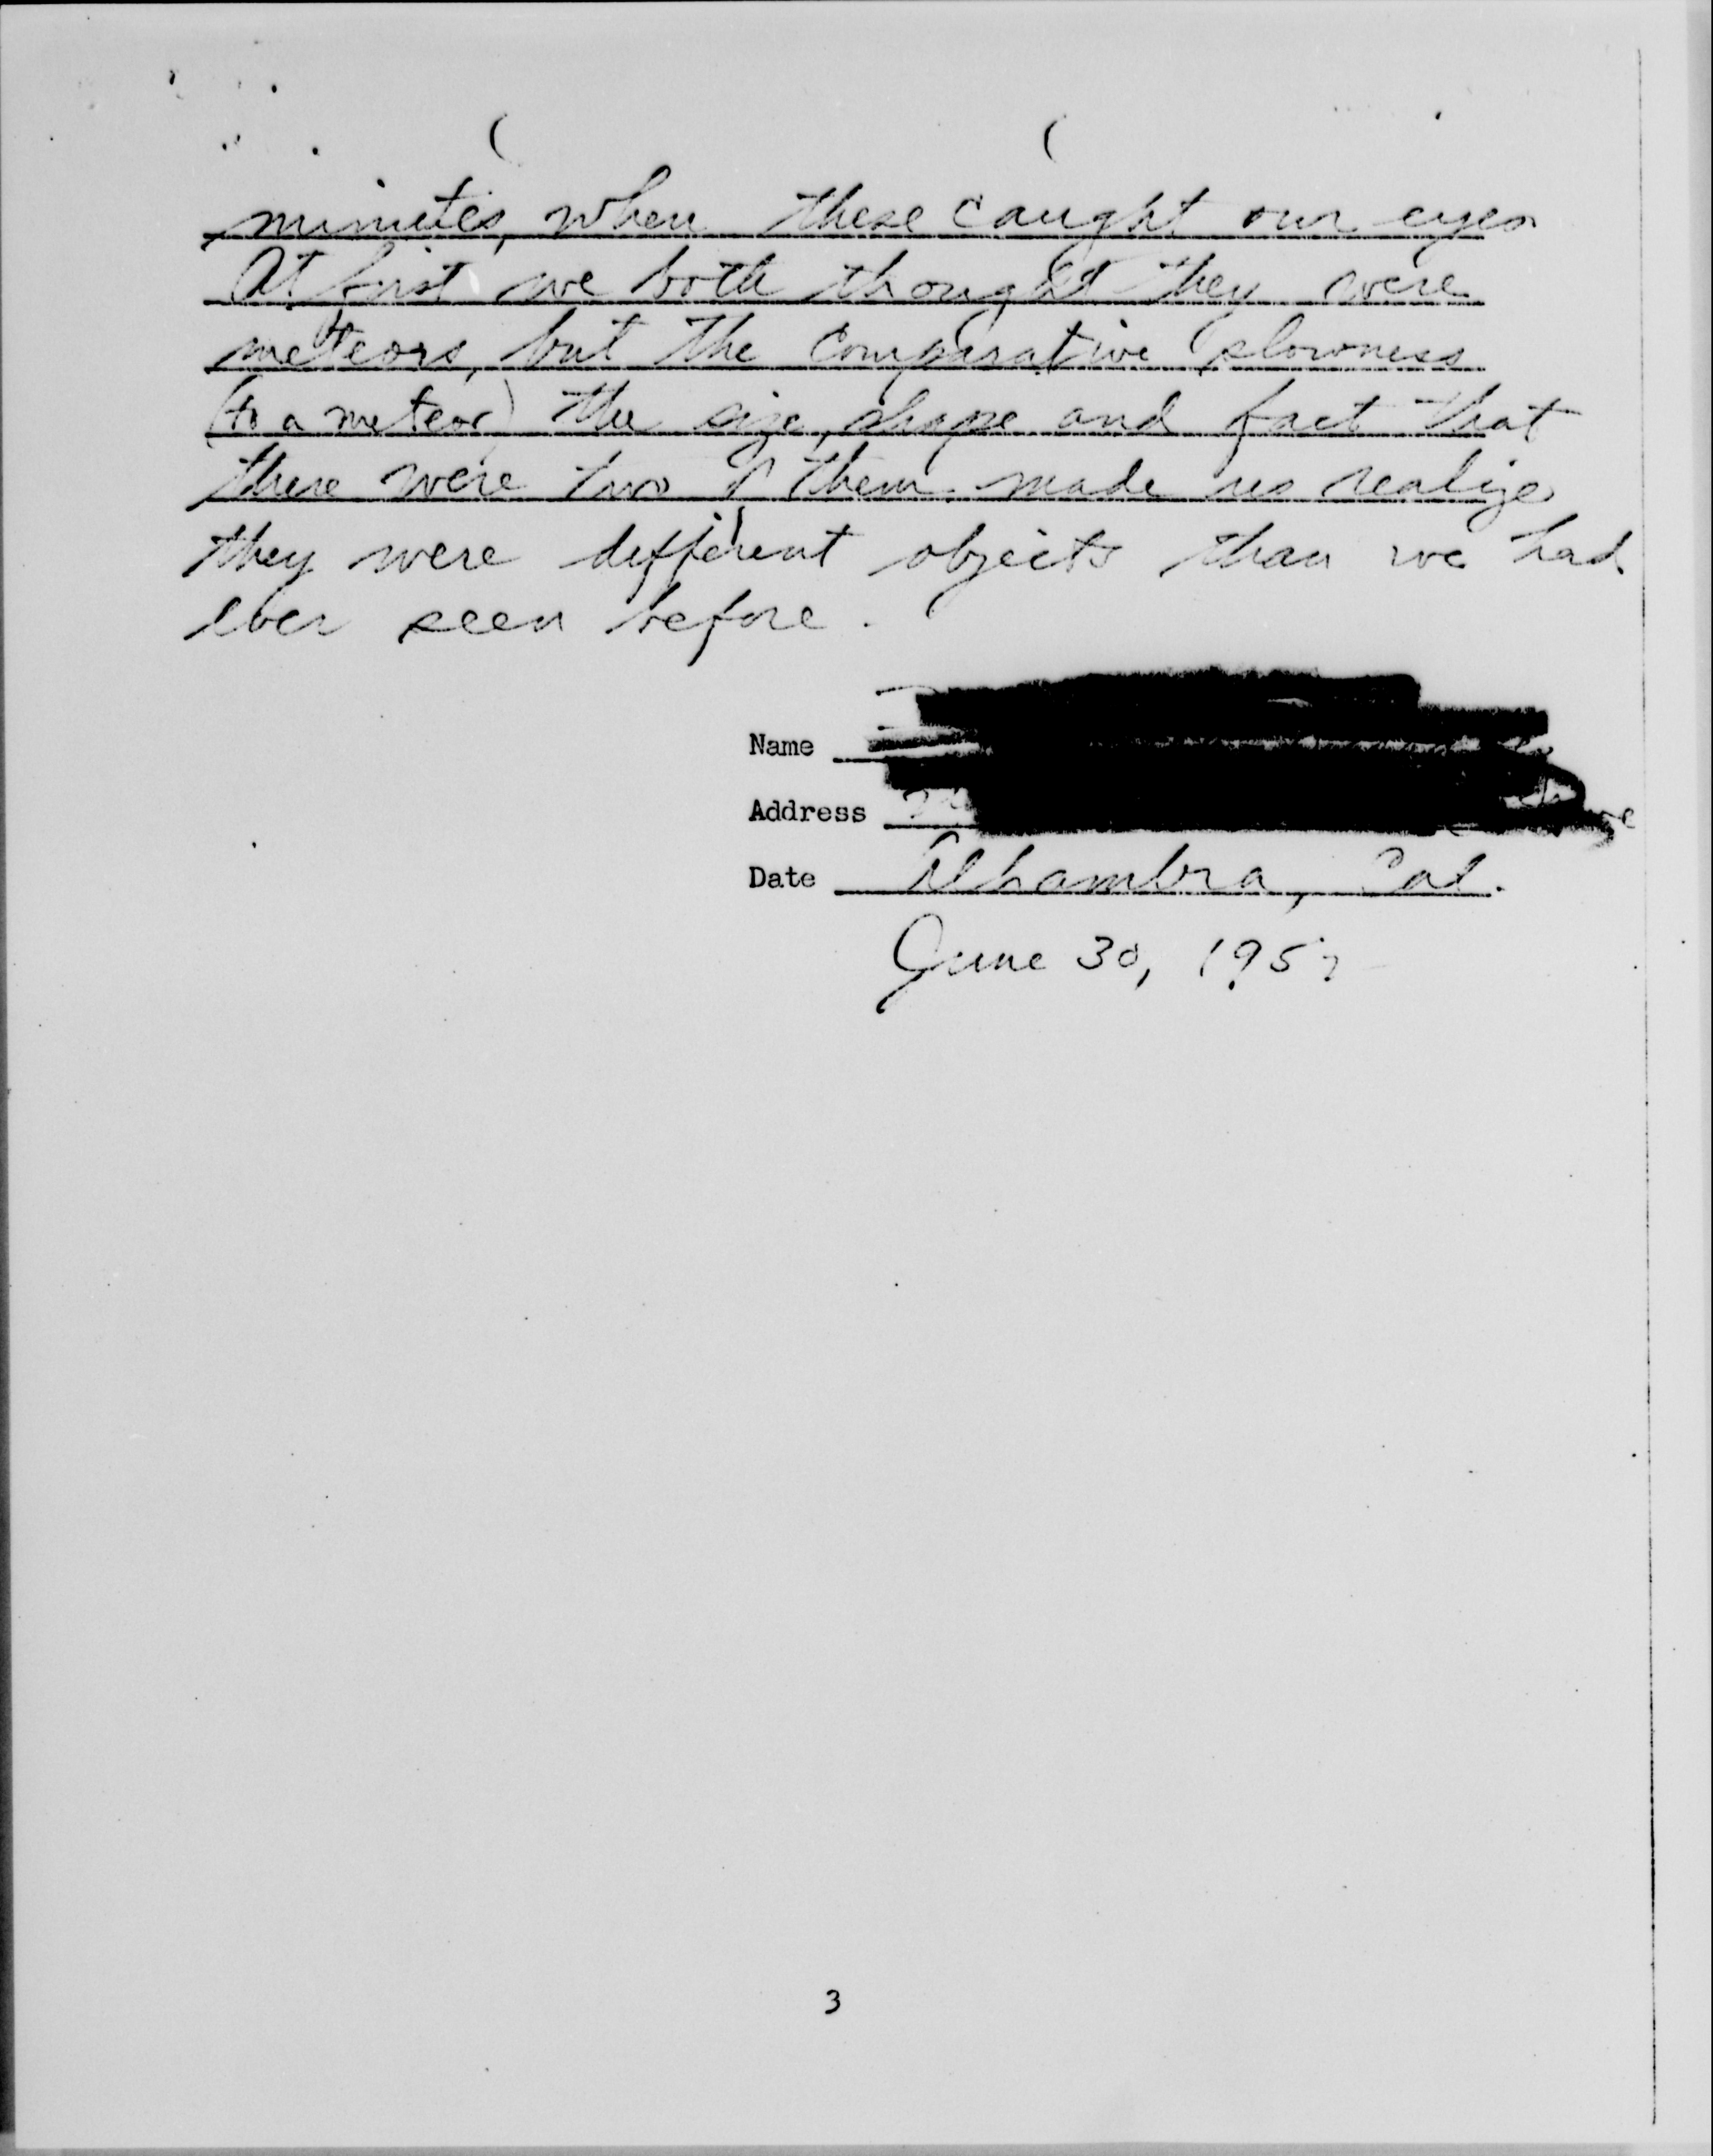 minutes, when these caught our eyes
At first we both thought they were
meteors, but the comparative slowness
(to a meteor) the size, shape and fact that
there were two of them made us realize
they were different objects than we had
ever seen before.
Name
Address
Date Alhambra, Cal.
June 30, 195
3